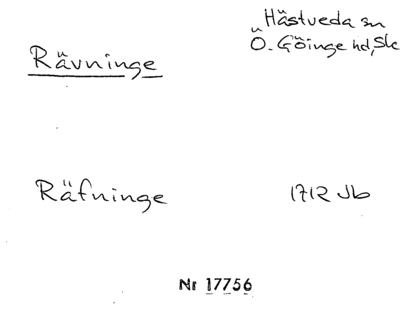 Hästveda sn
Rävninge
Ö. Göinge hd, Sk
Räfninge 1712 Jb
Nr 17756